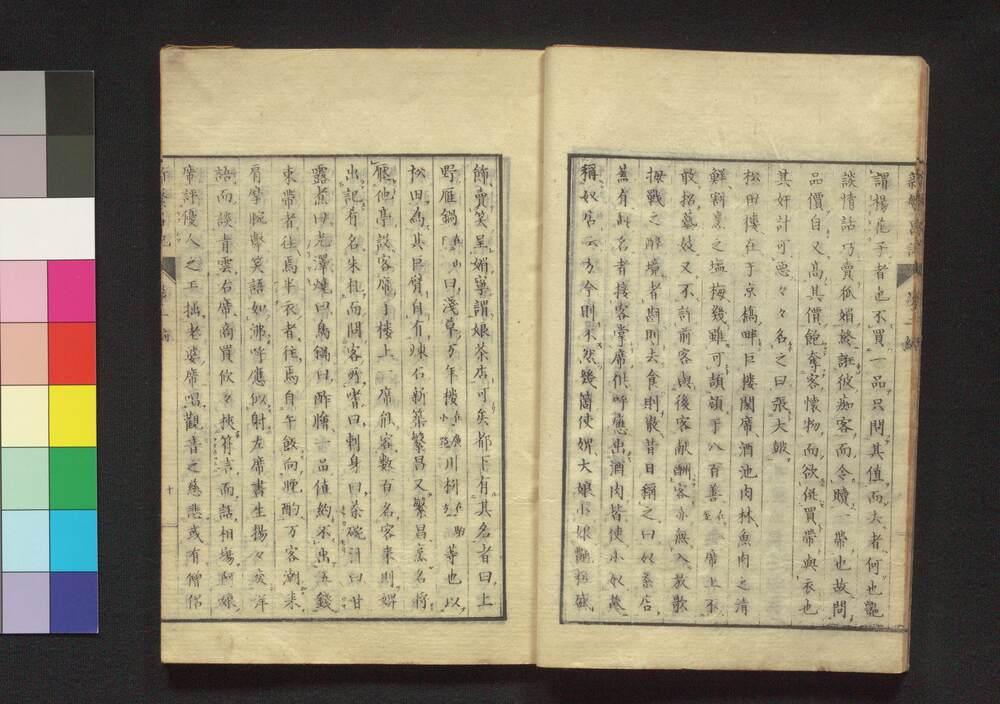 謂楊花子者也不買一品只問其值而去者何也艷
談情話巧賣狐媚終誑彼痴客而令購一帶也故問
品價自又高其價飽奪客懷物而欲併買帶與衣也
其奸計可惡々々名之曰張大皷
松田樓在于京橋畔巨樓開席酒池肉林魚肉之清
鮮割烹之塩梅幾雖可頡頏于八百善席上不
敢招藝妓又不許前客與後客献酬客亦無入放歌
拇戰之醉境者尚則去食則散昔日稱之曰奴茶店
蓋有此名者接客掌席供呼應出酒肉皆使小奴
稱奴店云方今則不然幾箇使婢大娘小娘艷粧盛
飾賣笑呈媚寧謂娘茶店可矣都下有其名者曰上
野雁鍋曰淺草万年樓川桝等也以
松田為其巨擘自有煉石新築繁昌又繁昌意名將
壓他亭設客席于樓上一席能容數百名客来則婢
出記有名朱札而聞客所嗜曰刺身曰茶碗曰甘
露煮曰光澤燒曰鳥鍋曰酢膾一品值約不出五錢
束帶者往焉半衣者往焉自午飯向晩酌万客潮来
肩摩腕擊笑語如沸呼應似射左席書生揚々交洋
語而談青雲右席商買傲々挾符言而話相塲阿娘
席評優人之工拙老婆席唱觀音之慈悲或有僧侶
十